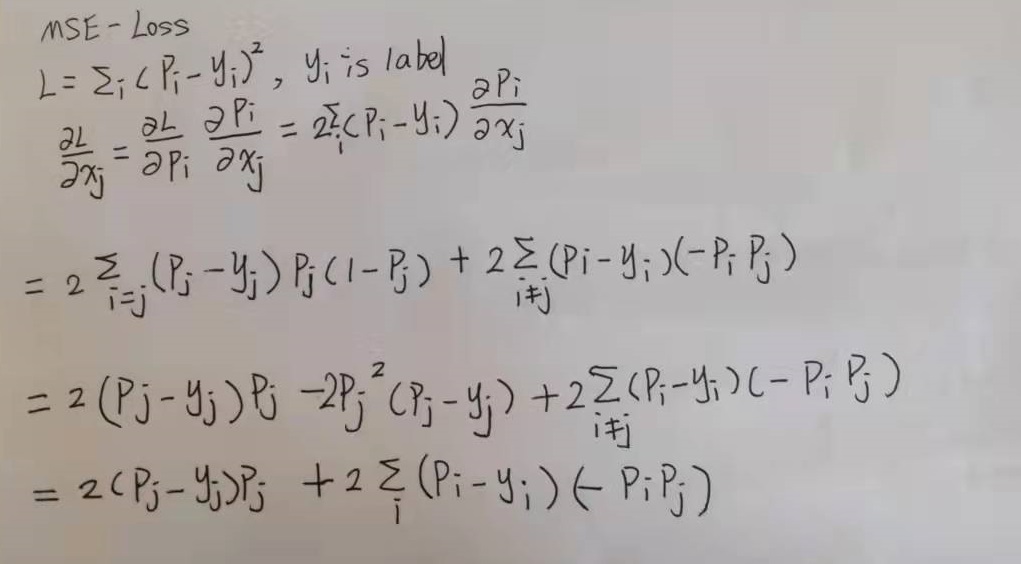 MSE-Loss
L = Σ_i (P_i - y_i)², y_i is label
∂L/∂x_j = ∂L/∂P_i ∂P_i/∂x_j = 2Σ_i (P_i - y_i) ∂P_i/∂x_j
= 2 Σ_{i=j} (P_j - y_j) P_j (1 - P_j) + 2 Σ_{i≠j} (P_i - y_i)(-P_i P_j)
= 2 (P_j - y_j) P_j - 2P_j² (P_j - y_j) + 2 Σ_{i≠j} (P_i - y_i)(-P_i P_j)
= 2 (P_j - y_j) P_j + 2 Σ_i (P_i - y_i)(-P_i P_j)